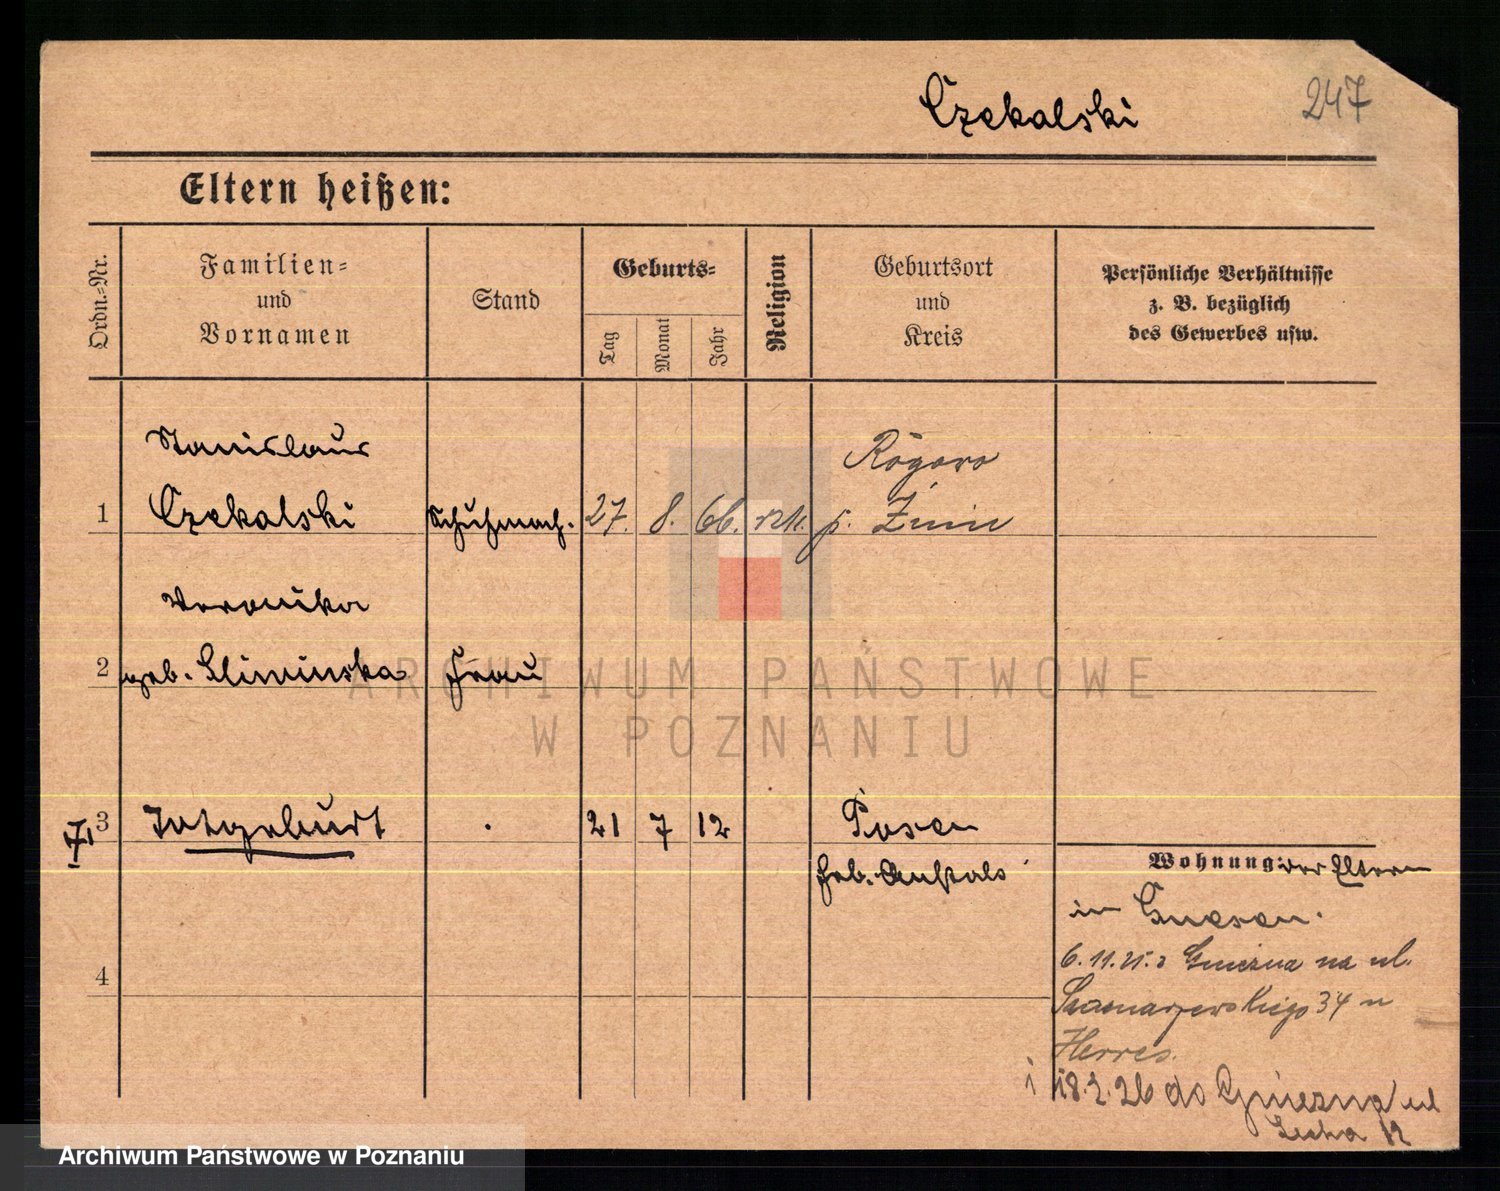 Czekalski
247
Eltern heißen:
Ordn.=Nr.
Familien=
und
Vornamen
Stand
Geburts=
Tag
Monat
Jahr
Religion
Geburtsort
und
Kreis
Persönliche Verhältnisse
z. B. bezüglich
des Gewerbes usw.
Stanislaus
Rogowo
1 Czekalski Schuhmach. 27. 8. 66. rzk. p. Żnin
Veronika
2 geb. Sliwinska Frau
3 Totgeburt . 21 7 12 Posen
Heb. Anstalt
Wohnung: der Eltern
in Gnesen.
6.11.25. z Gniezna na ul.
34 u
Herres.
4
i 18.2.26 do Gniezna ul
Lecha 12
ARCHIWUM PAŃSTWOWE
W POZNANIU
Archiwum Państwowe w Poznaniu